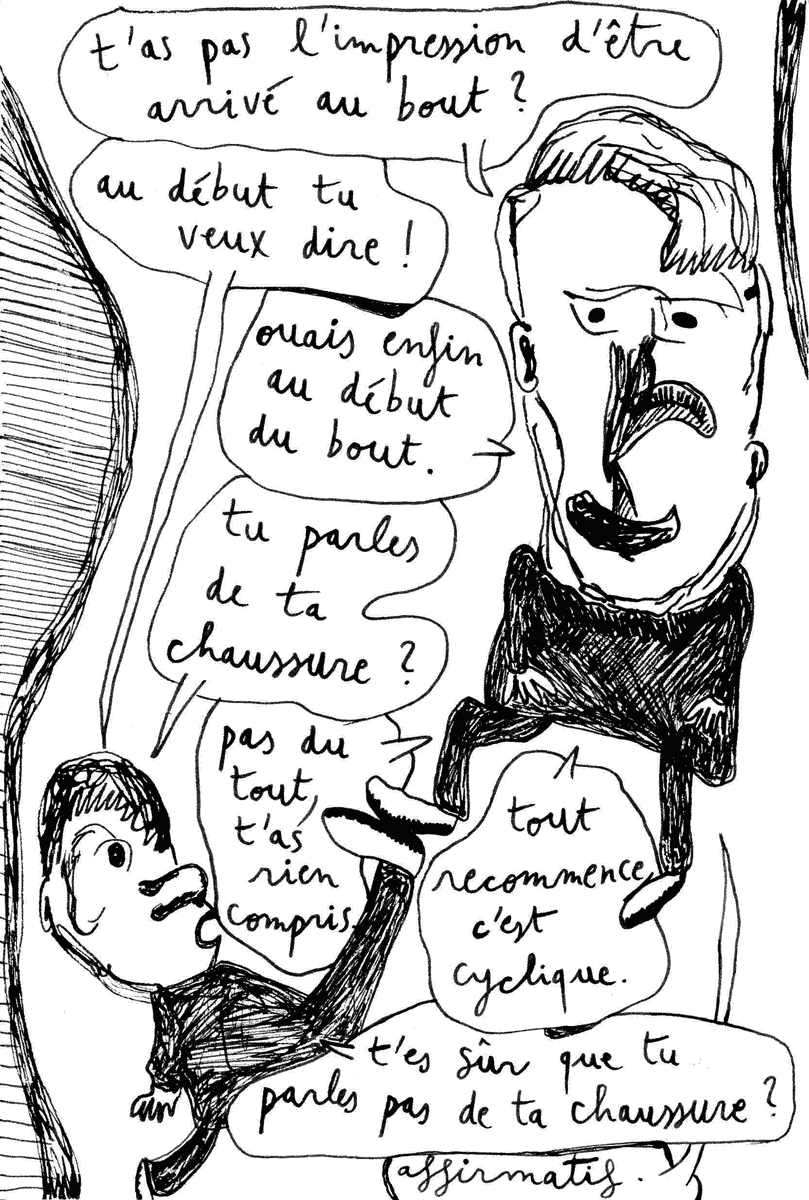 t'as pas l'impression d'être
arrivé au bout ?
au début tu
veux dire !
ouais enfin
au début
du bout.
tu parles
de ta
chaussure ?
pas du
tout,
t'as
rien
compris.
tout
recommence,
c'est
cyclique.
t'es sûr que tu
parles pas de ta chaussure ?
affirmatif.